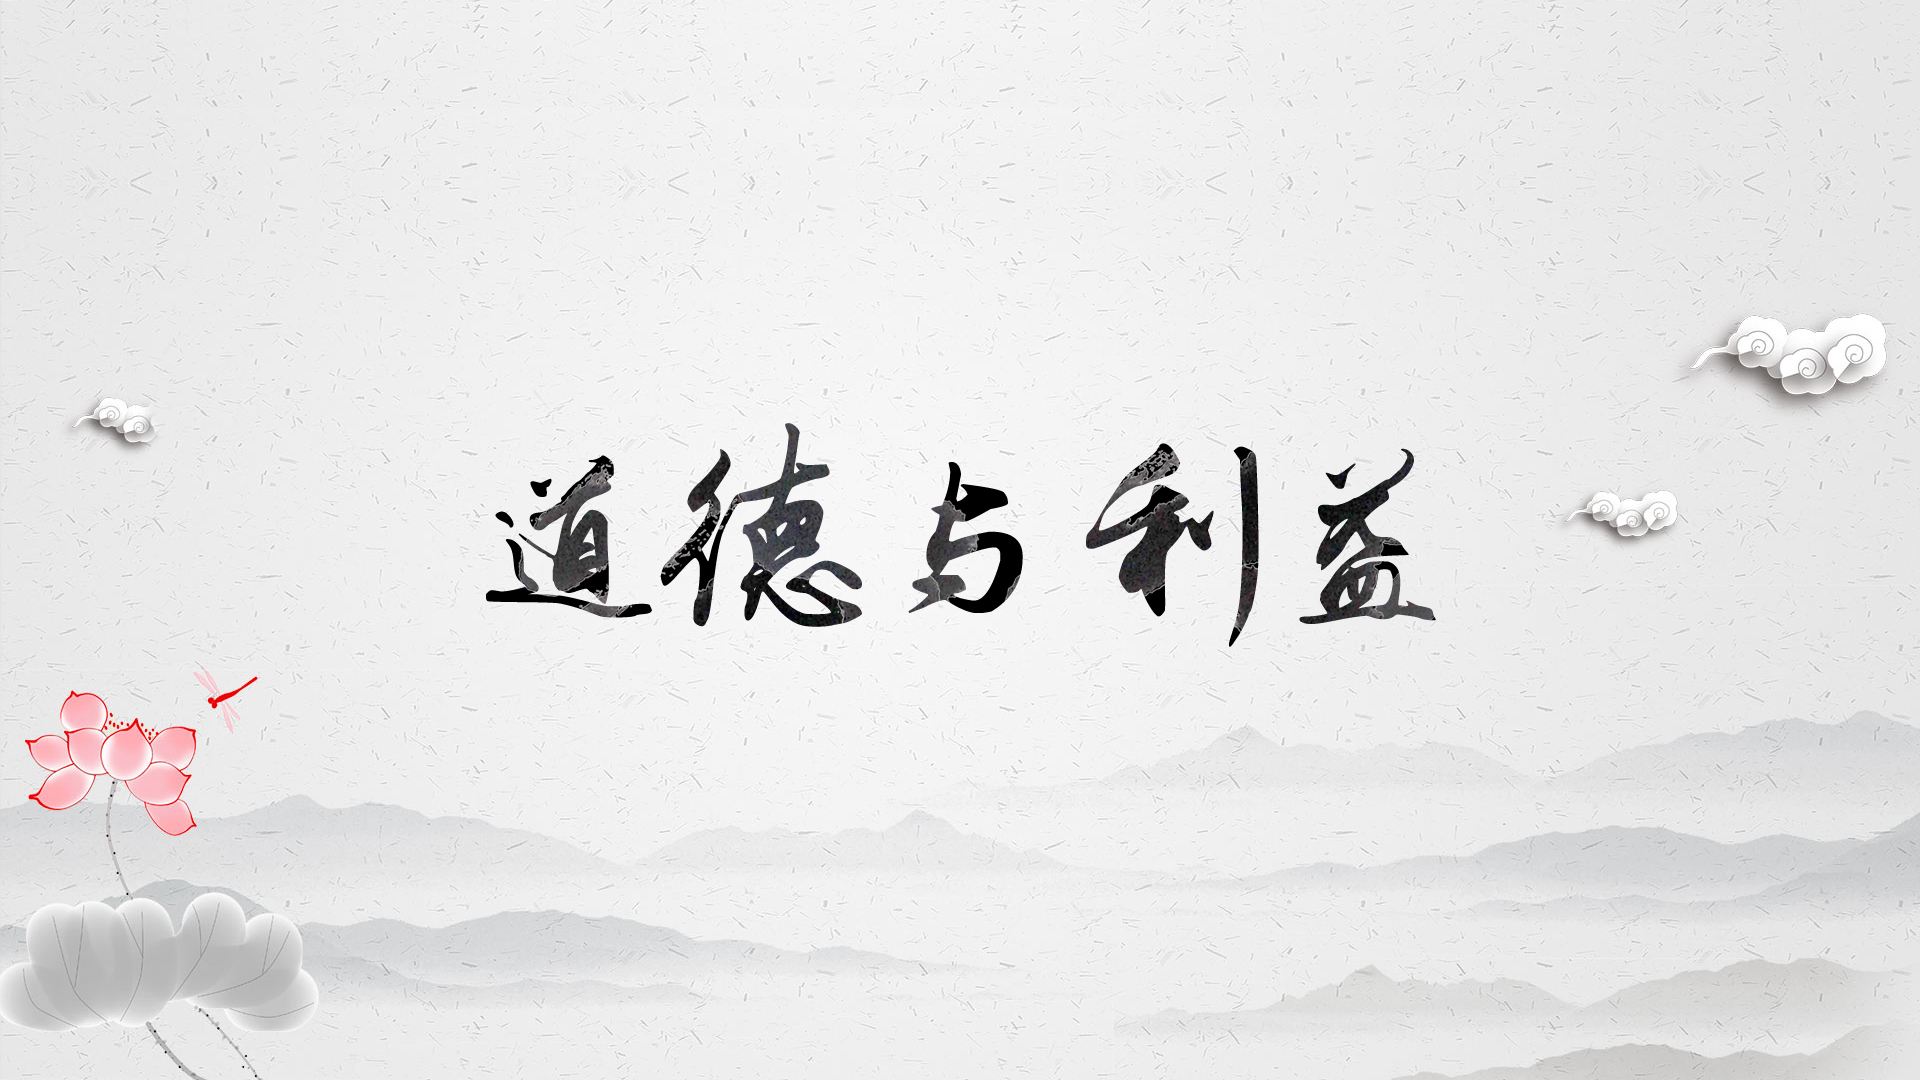 道德与利益